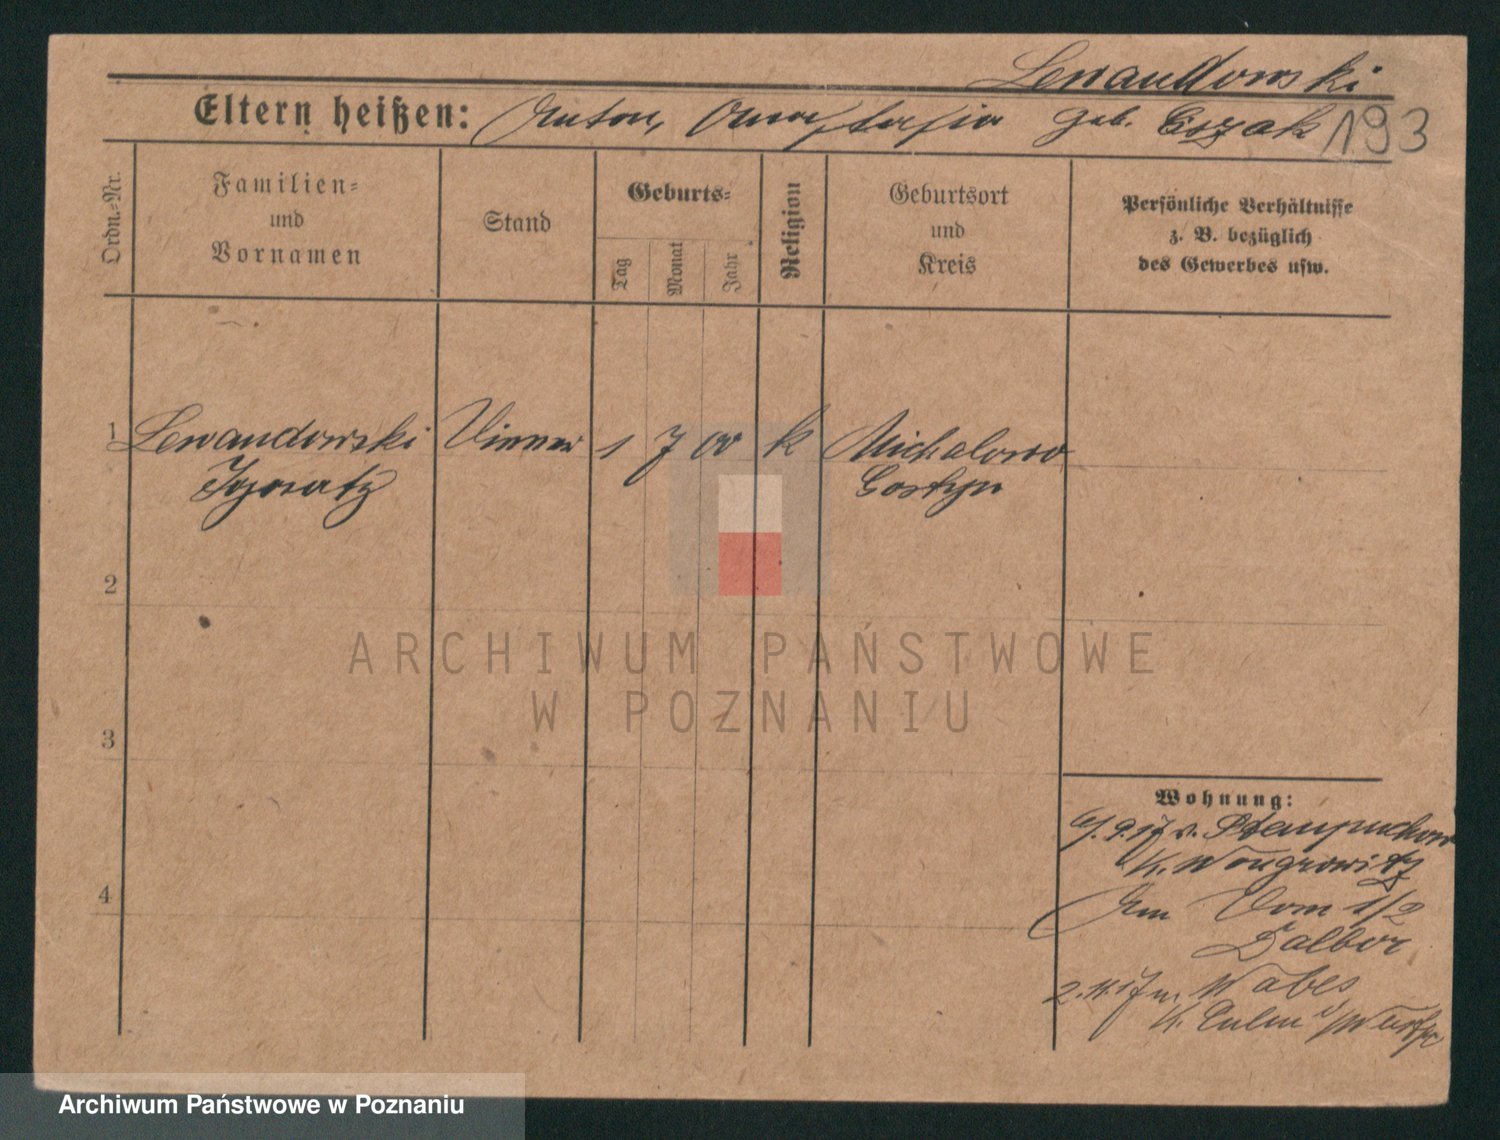 Lewandowski
Eltern heißen: Anton, Anastasia geb. Czak 193
Ordn.-Nr.
Familien-
und
Vornamen
Stand
Geburts-
Tag
Monat
Jahr
Religion
Geburtsort
und
Kreis
Persönliche Verhältnisse
z. B. bezüglich
des Gewerbes usw.
1 Lewandowski Diener 1 7 00 k Michalowo
Ignatz Gostyn
2
3
4
Wohnung:
6/9.17 v.
K. Wongrowitz
Am Dom 1/2
Dalbor
2.11.17 n. Wabcz
K. Culm i/Westpr
ARCHIWUM PAŃSTWOWE
W POZNANIU
Archiwum Państwowe w Poznaniu